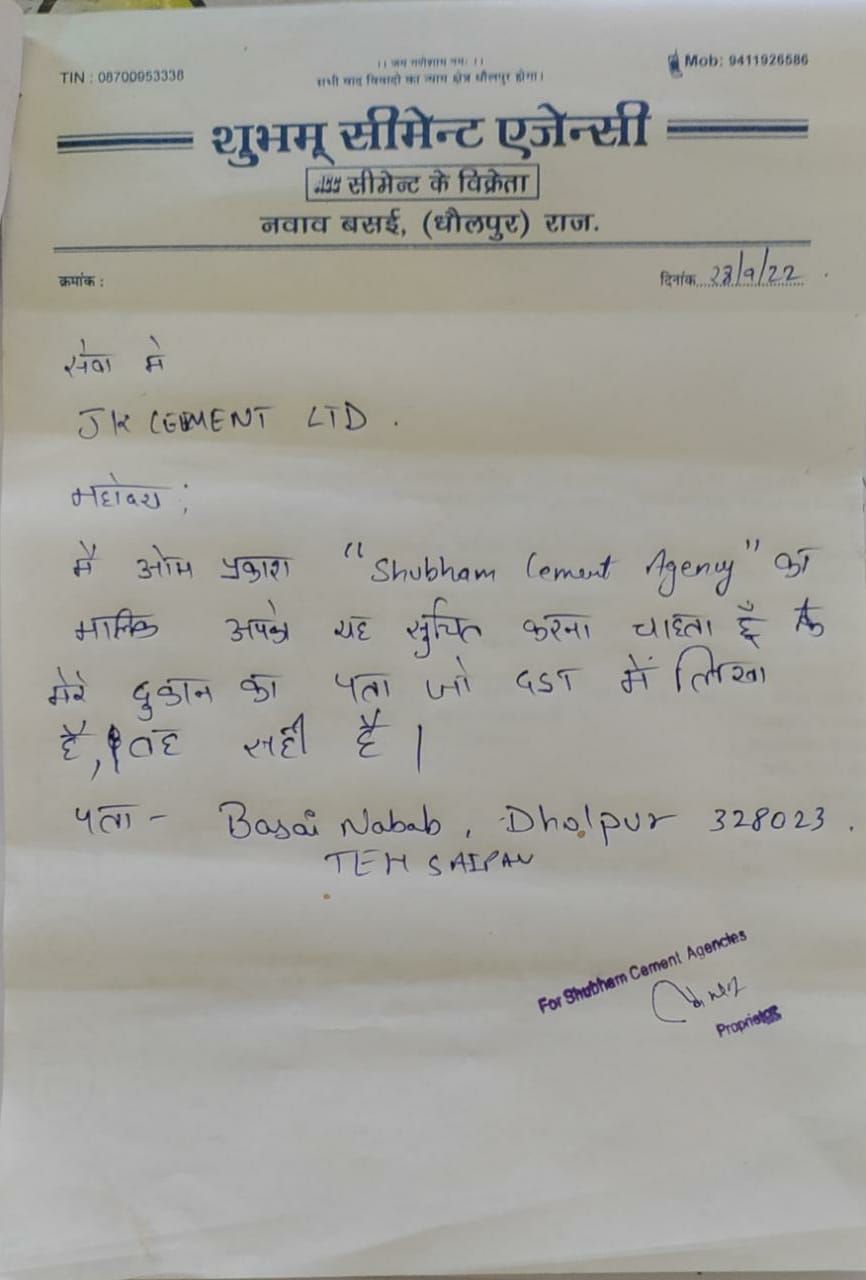 ।। जय गणेशाय नमः ।।
TIN : 08700953338
सभी वाद विवादो का न्याय क्षेत्र धौलपुर होगा।
Mob: 9411926586
शुभम् सीमेन्ट एजेन्सी
सीमेन्ट के विक्रेता
नवाव बसई, (धौलपुर) राज.
क्रमांक :
दिनांक 28/9/22
सेवा मे
JK CEMENT LTD .
महोदय ;
मै ओम प्रकाश "Shubham Cement Agency" का
मालिक आपको यह सुचित करना चाहता हूँ कि
मेरे दुकान का पता जो GST में लिखा
है, वह सही है |
पता - Basai Nabab , Dholpur 328023 .
TEH SAIPAU
For Shubham Cement Agencies
Proprietor